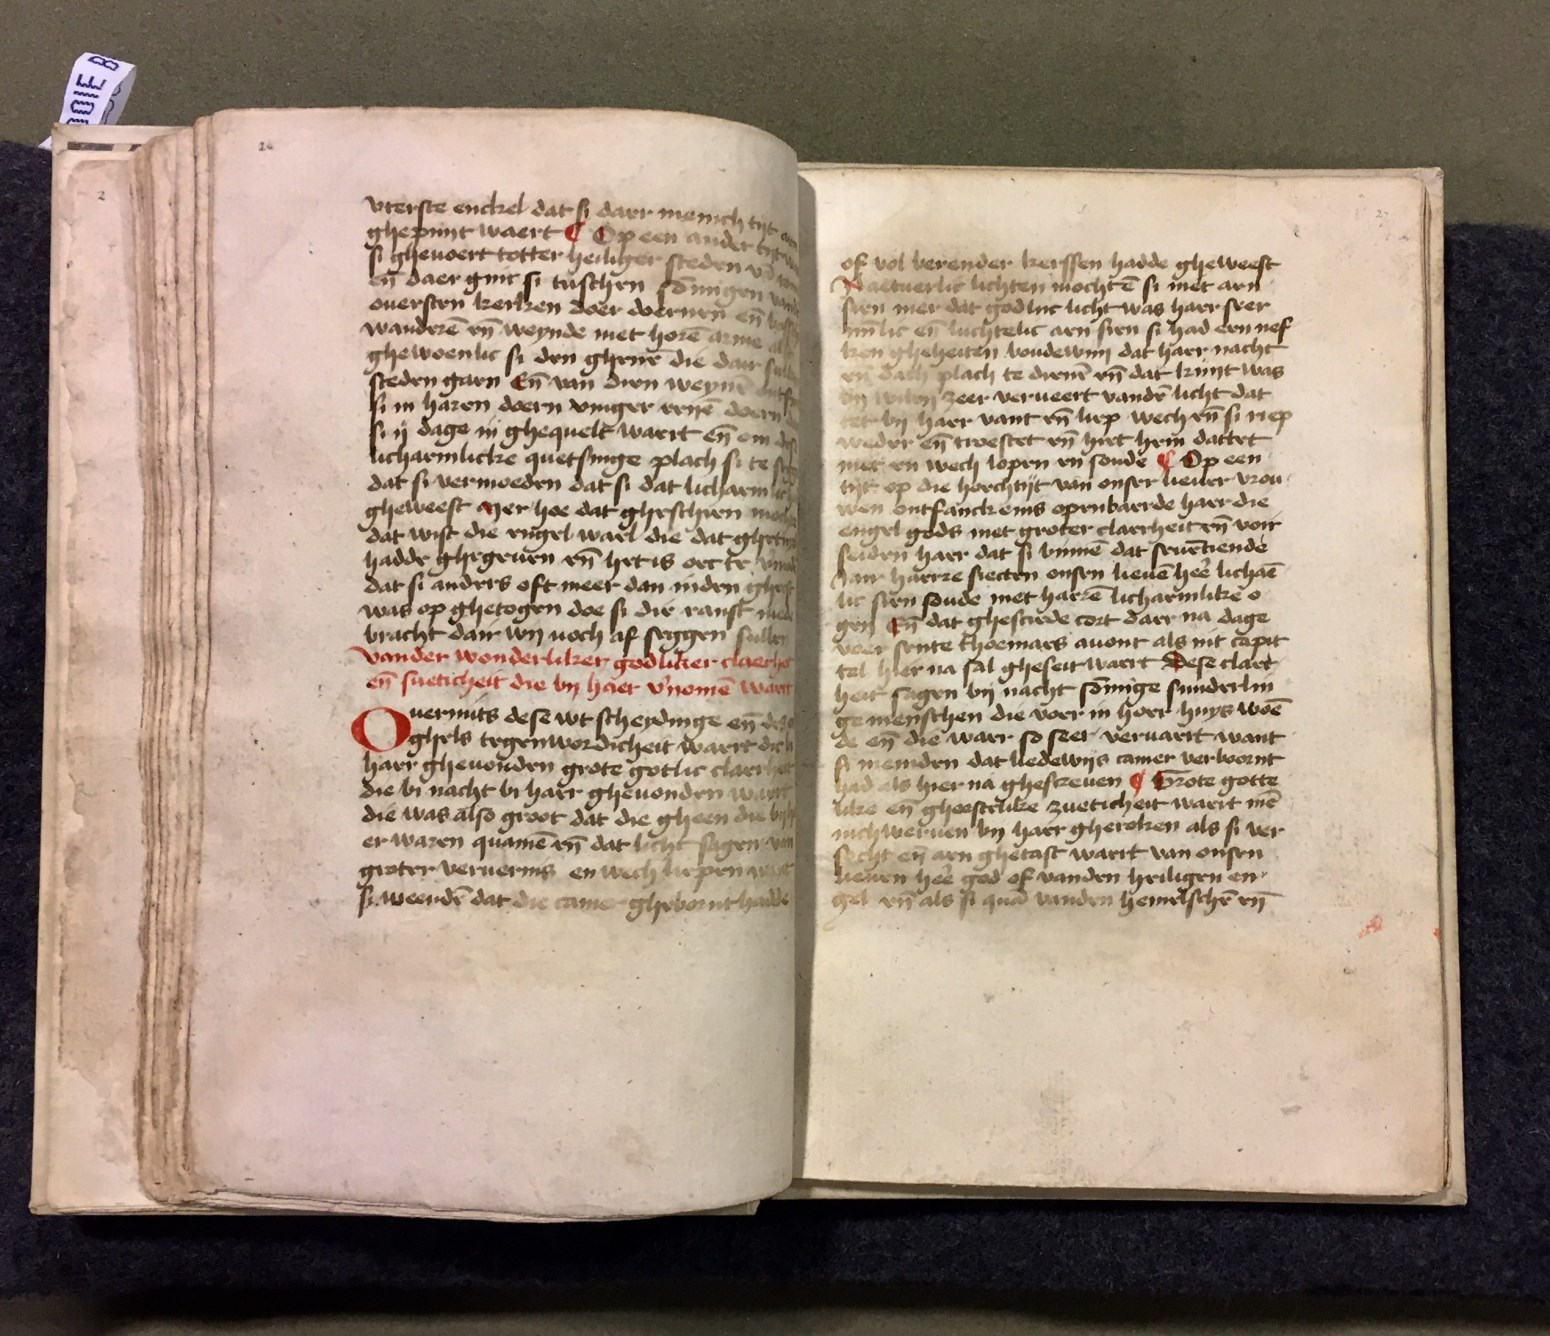 26
vterste enckel dat si daer menich tijt
ghepijnt waert ¶ Op een ander tijt
si gheuoert totter heiliger steden
eñ daer ginc si tusschen sōmigen
ouersten kerken doer doernen eñ
wanderē eñ weynde met horē arme
ghewoenlic si den ghenē die dair
steden gaen Eñ van dien weynē
si in haren doern vinger eenē doern
si ij dage in ghequelt waert eñ om
lichaemlicke quetsinge plach si te
dat si vermoeden dat si dat lichaem
gheweest Mer hoe dat gheschien
dat wist die engel wael die dat
hadde ghegeuen eñ het is oec te
dat si anders oft meer dan inden
was op ghetogen doe si die ranst
bracht dair wij noch af seggen sullen
vander wonderliker godliker claerhe
eñ sueticheit die bij haer v'nomē waert
Ouermits dese wt scheydinge eñ
ghels tegenwordicheit waert dic
haer gheuonden grote gotlic claerheit
die bi nacht bi haer gheuonden waert
die was also groot dat die gheen die bij
er waren quamē eñ dat licht sagen
groter veruernis en wech liepen want
si weendē dat die camer ghebornt hadde
2
27
of vol bernender kerssen hadde gheweest
Naetuerlic lichten mochtē si met aen
sien mer dat godlijc licht was haer seer
lic eñ luchtelic aen sien si had een nef
ken gheheiten boudewijn dat haer nacht
eñ dach plach te dienē eñ dat kijnt was
bij wilen zeer verueert vandē licht dat
tet bij haer vant eñ liep wech eñ si riep
weder eñ troestet eñ hiet hem dattet
niet en wech lopen en soude ¶ Op een
tijt op die hoechtijt van onser lieuer vrou
wen ontfanckenis openbaerde haer die
engel gods met groter claerheit eñ voir
seiden haer dat si binnē dat seuētiende
iair haerre siecten onsen lieuē heē lichaē
lic sien soude met haren̄ lichaemlikē o
gen Eñ dat ghesciede cort daer na dage
voer sente thoemaes auont als int capit
tel hier na sal gheseit waert Dese claer
heit sagen bij nacht sōmige sunderlin
ge menschen die voer in hoer huys woē
de eñ die waer so seer veruaert want
si meinden dat liedewijs camer verboernt
had als hier na ghescreuen ¶ Grote gotte
like eñ gheestelike zueticheit waert mē
nichweruen bij haer gheroken als si ver
socht eñ aen ghetast waert van onsen
lieuen heē god of vanden heiligen en
gel eñ als si quā vanden hemelschē eñ